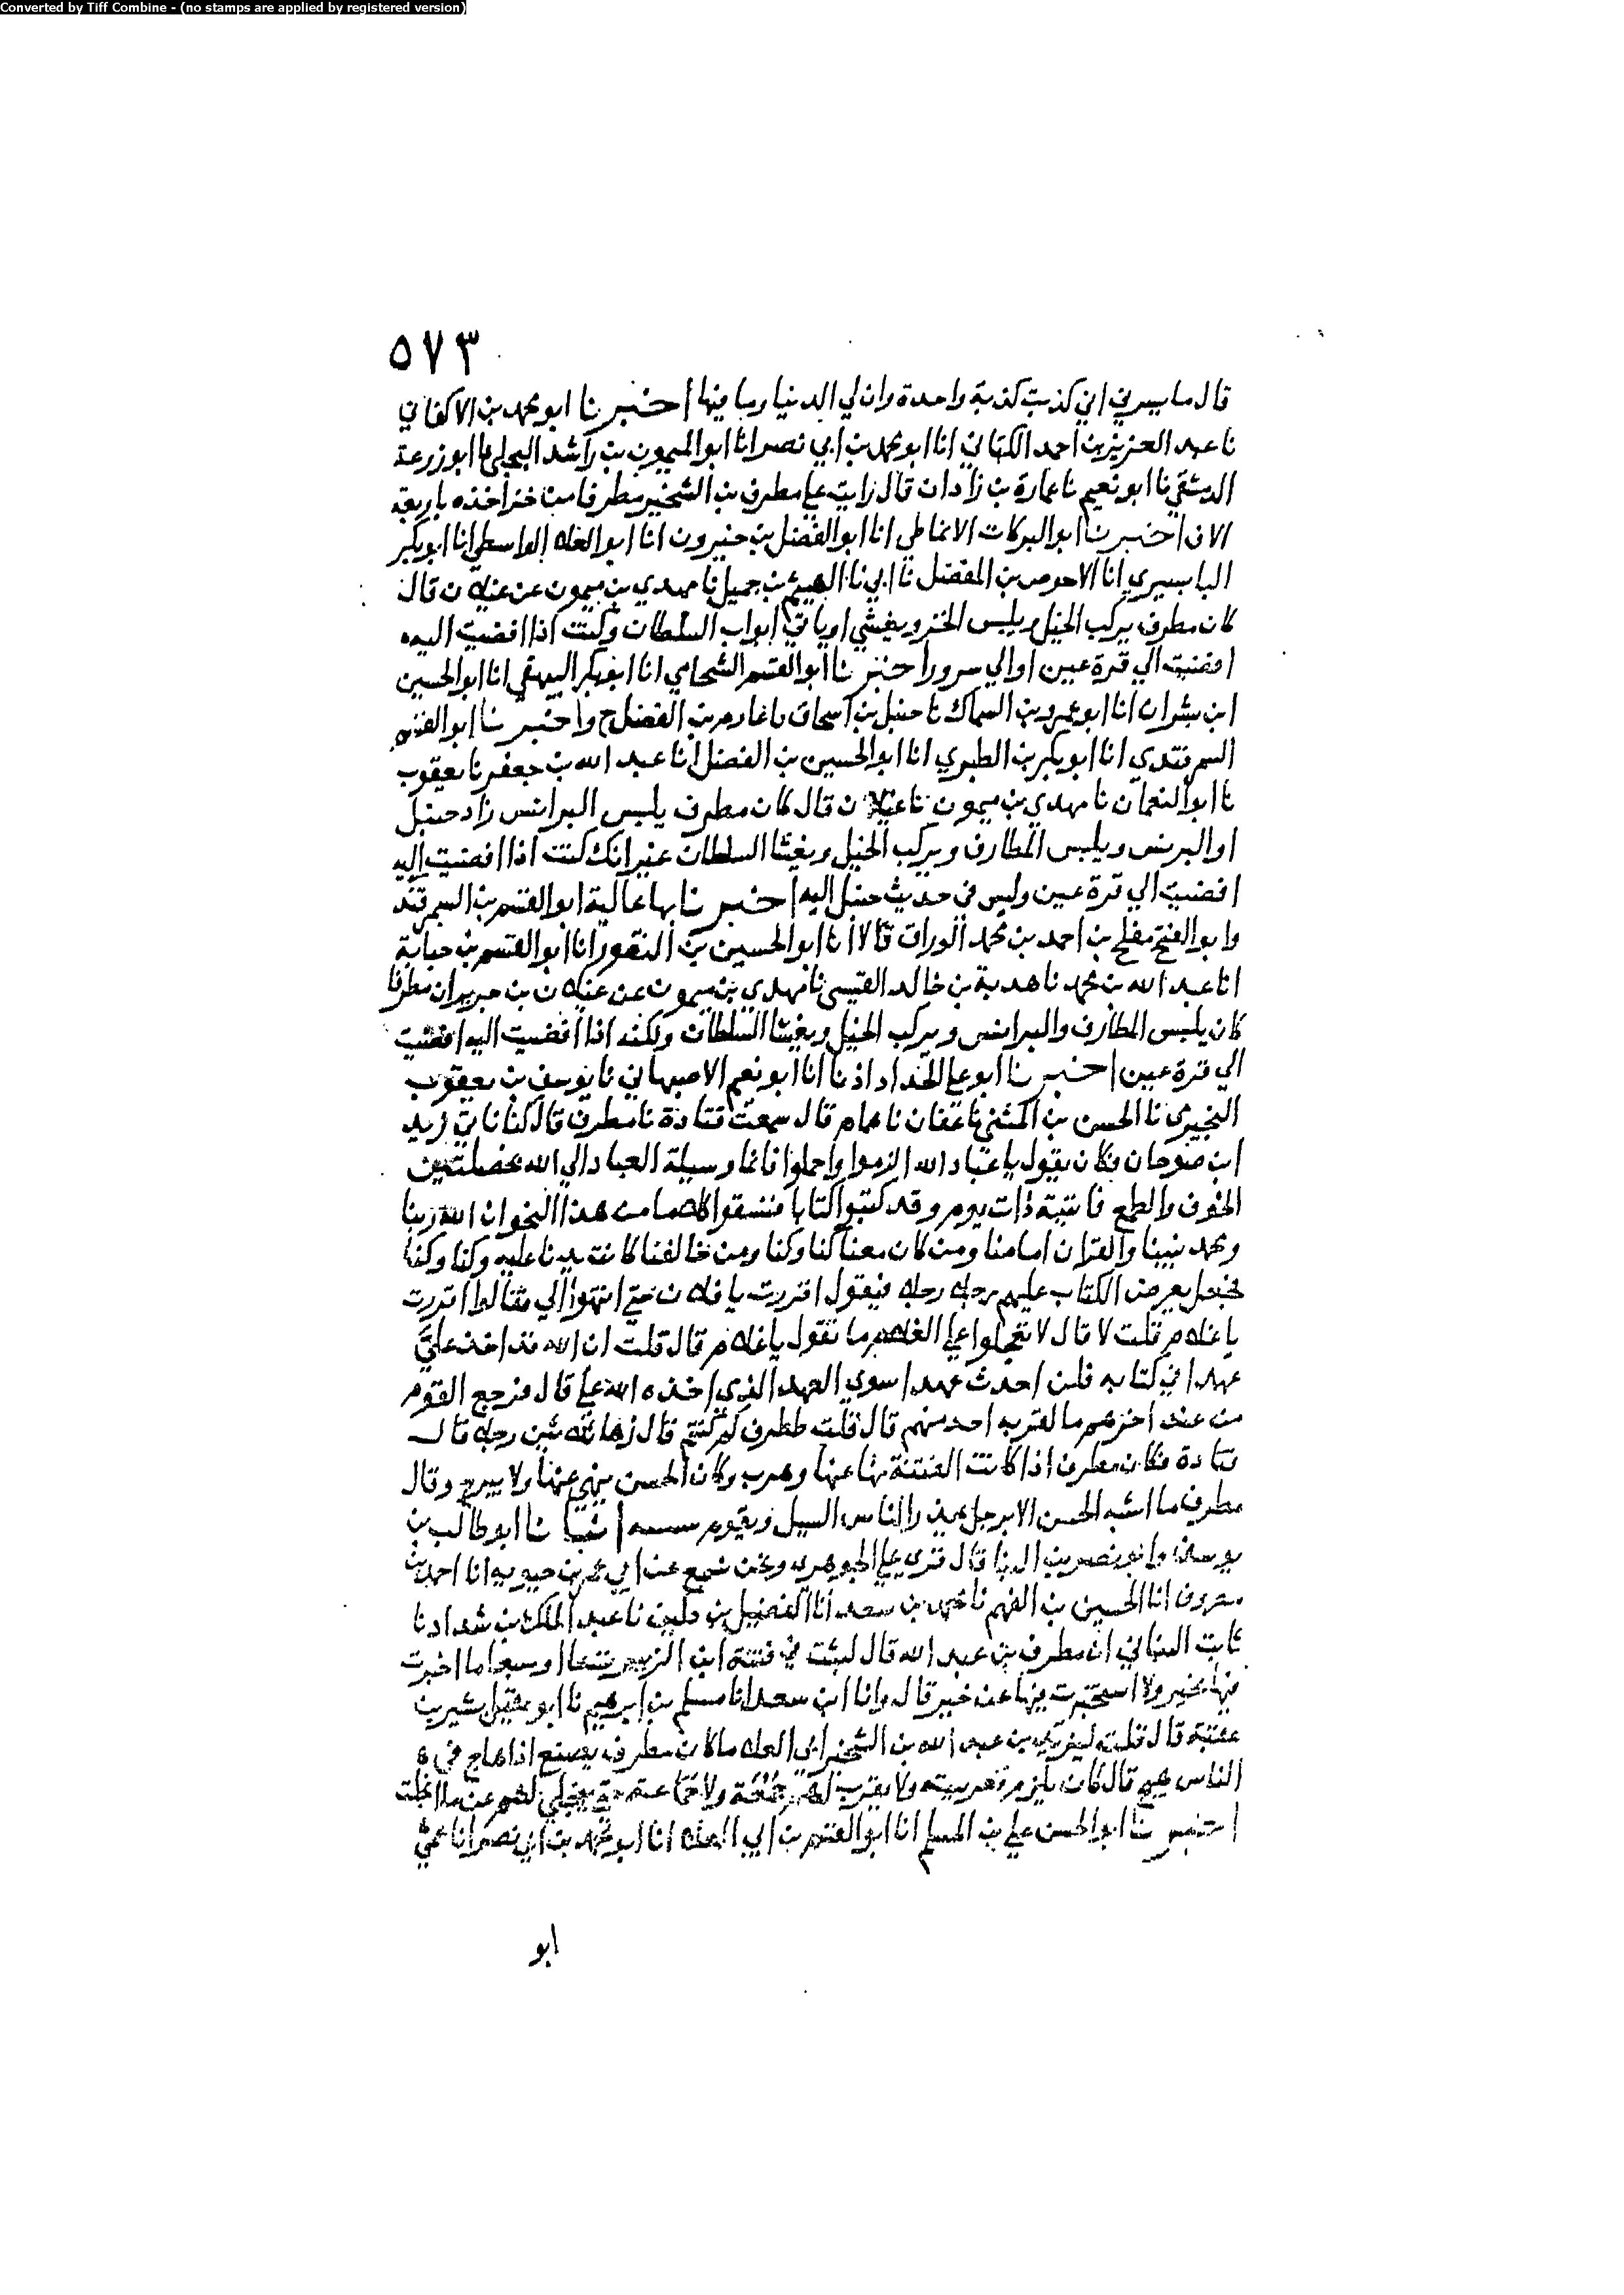 Converted by Tiff Combine - (no stamps are applied by registered version)
٥٧٣
قال ما يسرني اني كذبت كذبة واحدة وان لي الدنيا وما فيها اخبرنا ابو محمد بن الاكفاني
نا عبد العزيز بن احمد الكتاني انا ابو محمد بن ابي نصر انا ابو الميمون بن راشد البجلي نا ابو زرعة
الدمشقي نا ابو نعيم نا عمارة بن زادان قال رايت على مطرف بن الشخير مطرفا من خز اخذه باربعة
الاف اخبرنا ابو البركات الانماطي انا ابو الفضل بن خيرون انا ابو العلاء الواسطي انا ابو بكر
البابسيري انا الاحوص بن المفضل نا ابي نا الهيثم بن جميل نا مهدي بن ميمون عن غيلان قال
كان مطرف يركب الخيل ويلبس الخز ويغشي او ياتي ابواب السلطان وكنت اذا افضيت اليه
افضيت الي قرة عين او الي سرور اخبرنا ابو القسم الشحامي انا ابو بكر البيهقي انا ابو الحسين
ابن بشران انا ابو عمرو بن السماك نا حنبل بن اسحاق نا عارم بن الفضل ح واخبرنا ابو القسم
السمرقندي انا ابو بكر بن الطبري انا ابو الحسين بن الفضل انا عبد الله بن جعفر نا يعقوب
نا ابو النعمان نا مهدي بن ميمون نا غيلان قال كان مطرف يلبس البرانس زاد حنبل
او البرنس ويلبس المطارف ويركب الخيل ويغشا السلطان غير انك كنت اذا افضيت اليه
افضيت الي قرة عين وليس في حديث حنبل اليه اخبرنا بها عالية ابو القسم بن السمرقند
وابو الفتح مفلح بن احمد بن محمد الوراق قالا انا ابو الحسين بن النقور انا ابو القسم بن حبابة
انا عبد الله بن محمد نا هدبة بن خالد القيسي نا مهدي بن ميمون عن غيلان بن جرير ان مطرفا
كان يلبس المطارف والبرانس ويركب الخيل ويغشا السلطان ولكنه اذا افضيت اليه افضيت
الي قرة عين اخبرنا ابو علي الحداد اذنا انا ابو نعيم الاصبهاني نا يوسف بن يعقوب
النجيرمي نا الحسن بن المثنى نا عفان نا همام قال سمعت قتادة نا مطرف قال كنا ناتي زيد
ابن صوحان وكان يقول يا عباد الله الزموا واحملوا فانما وسيلة العباد الي الله بخصلتين
الخوف والطمع فاتيته ذات يوم وقد كتبوا كتابا فنسقوا كلاما من هذا النحو ان الله ربنا
ومحمد نبينا والقران امامنا ومن كان معنا كنا وكنا ومن خالفنا كانت يدنا عليه وكنا وكنا
فجعل يعرض الكتاب عليهم رجلا رجلا فيقول اقررت يا فلان حتي انتهوا الي فقالوا اقررت
يا غلام قلت لا قال لا تعجلوا علي الغلام ما تقول يا غلام قال قلت ان الله قد اخذ عليّ
عهدا في كتابه فلن احدث عهدا سوي العهد الذي اخذه الله علي قال فرجع القوم
من عند اخرهم ما اقر به احد منهم قال قلت لمطرف كم كنتم قال زها ثلاثين رجلا قال
قتادة وكان مطرف اذا كانت الفتنة نها عنها وهرب وكان الحسن ينهي عنها ولا يبرح وقال
مطرف ما اشبه الحسن الا برجل يحذر الناس السيل ويقوم انبانا ابو طالب بن
يوسف وابو نصر بن البنا قال قري علي الجوهري ونحن نسمع عن ابي عمر بن حيويه انا احمد بن
معروف انا الحسين بن الفهم نا محمد بن سعد انا الفضل بن دكين نا عبد الملك بن شداد نا
ثابت البناني ان مطرف بن عبد الله قال لبثت في فتنة ابن الزبير تسعا او سبعا ما اخبرت
فيها بخبر ولا استخبرت فيها عن خبر قال وانا ابن سعد انا مسلم بن ابرهيم نا ابو عقيل بشير بن
عقبة قال قلت ليزيد بن عبد الله بن الشخير ابي العلاء ما كان مطرف يصنع اذا هاج في
الناس هيج قال كان يلزم قعر بيته ولا يقرب لهم جمعة ولا جماعة حتي ينجلي لهم عن ما انجلت
اخبرنا ابو الحسن علي بن المسلم انا ابو القسم بن ابي العلاء انا ابو محمد بن ابي نصر انا عمي
ابو